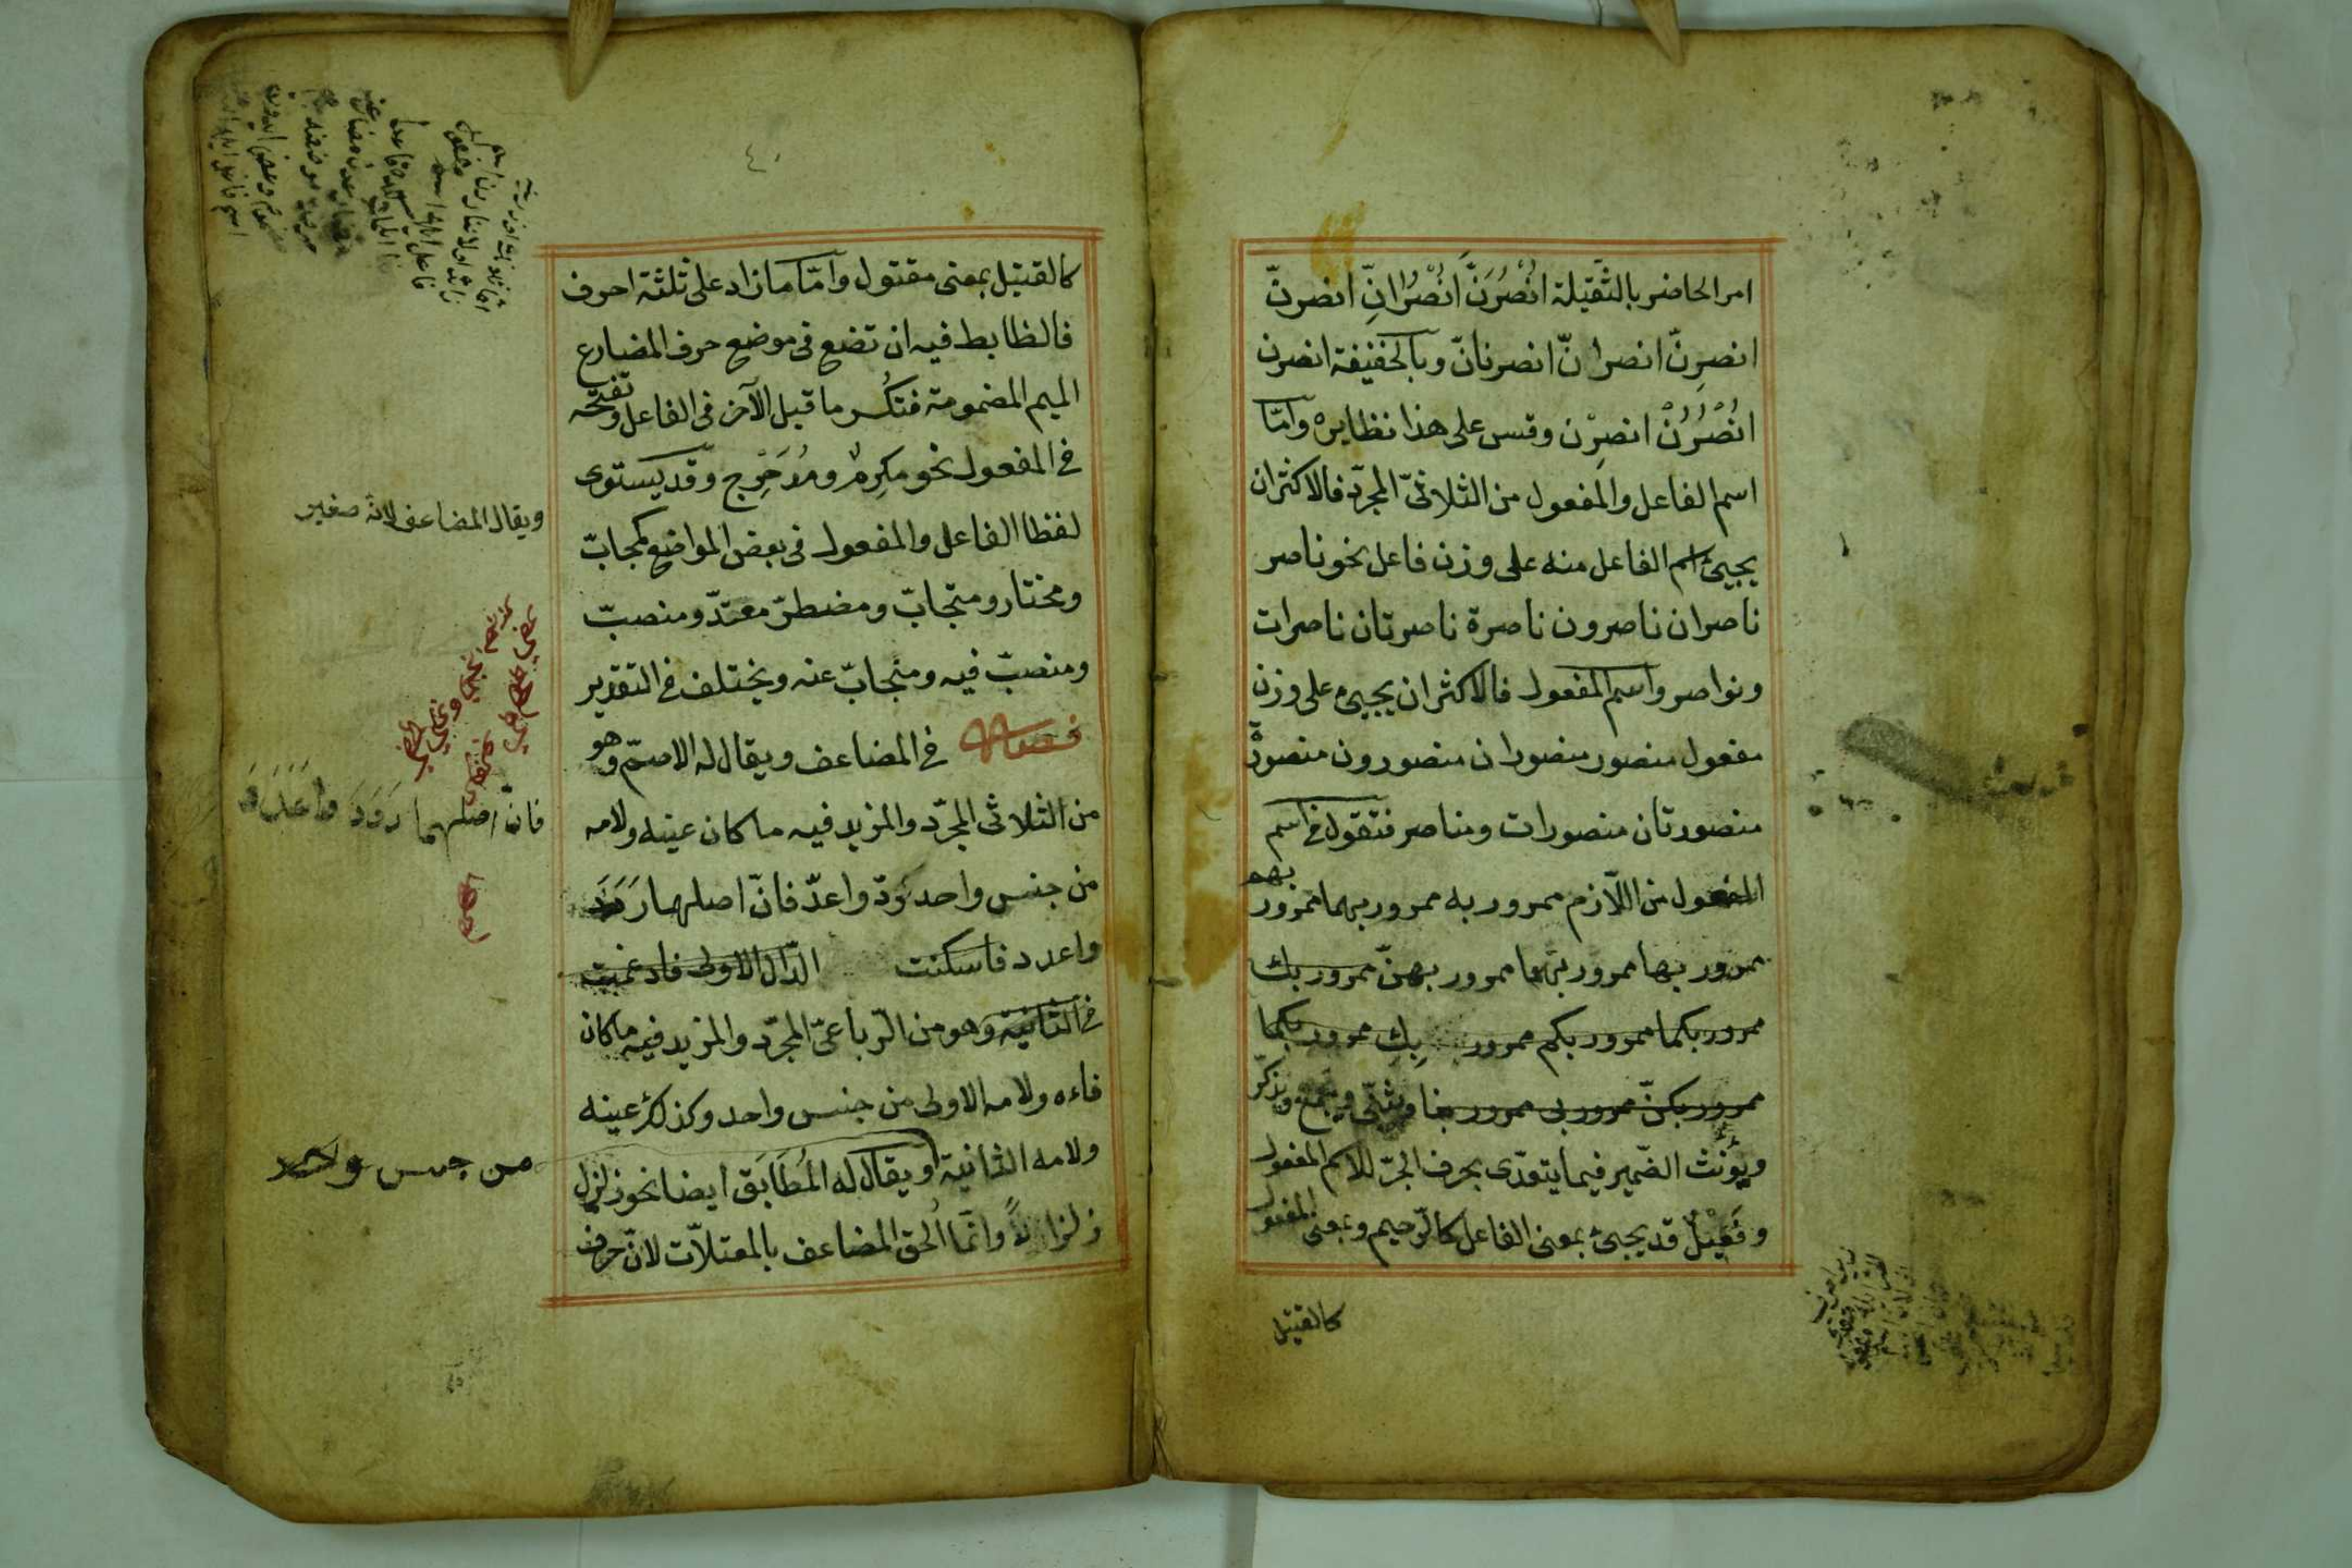 امر الحاضر بالثّقيلة اُنْصُرَنَّ اُنْصُرَانِّ انصرنّ
انصرِنّ انصرانّ انصرنانّ وبالخفيفة انصرن
اُنْصُرُنْ انصرِنْ وقس على هذا نظايره وامّا
اسم الفاعل والمفعول من الثلاثىّ المجرّد فالاكثر ان
يجيئ اسم الفاعل منه على وزن فاعل نحو ناصر
ناصران ناصرون ناصرة ناصرتان ناصرات
ونواصر واسم المفعول فالاكثر ان يجيئ على وزن
مفعول منصور منصوران منصورون منصورة
منصورتان منصورات ومناصر فتقول فى اسم
المفعول من اللّازم ممرور به ممرور بهما ممرور بهم
ممرور بها ممرور بهما ممرور بهنّ ممرور بك
ممرور بكما ممرور بكم ممرور بِكِ ممرور بكما
ممرور بكنّ ممرور بى ممرور بنا ويثنّى ويجمع ويذكّر
ويؤنّث الضّمير فيما يتعدّى بحرف الجرّ للاسم المفعول
وفَعِيْلٌ قد يجيئ بمعنى الفاعل كالرّحيم وبمعنى المفعول
كالقتيل
٤٠
كالقتيل بمعنى مقتول وامّا ما زاد على ثلثة احرف
فالظابط فيه ان تضع فى موضع حرف المضارع
الميم المضمومة فتكسر ما قبل الآخر فى الفاعل وتفتحه
فى المفعول نحو مكرِم ومُدَحْرِج وقد يستوى
لفظا الفاعل والمفعول فى بعض المواضع كمجابّ
ومختار ومتجابّ ومضطرّ معتدّ ومنصبّ
ومنصبّ فيه ومنجابّ عنه ويختلف فى التقدير
فصل فى المضاعف ويقال له الاصمّ وهو
من الثلاثى المجرّد والمزيد فيه ما كان عينه ولامه
من جنس واحد كردّ واعدّ فانّ اصلهما رَدَدَ
واعدد فاسكنت الدّال الاولى فادغمت
فى الثانية وهو من الرّباعىّ المجرّد والمزيد فيه ما كان
فاءه ولامه الاولى من جنس واحد وكذلك عينه
ولامه الثانية ويقال له المُطَابَق ايضا نحو زلزل
زلزالاً وانّما اُلحق المضاعف بالمعتلّات لانّ حرف
ويقال المضاعف لانه صغير
فانّ اصلهما رَدَدَ واَعْدَدَ
من جنس واحد